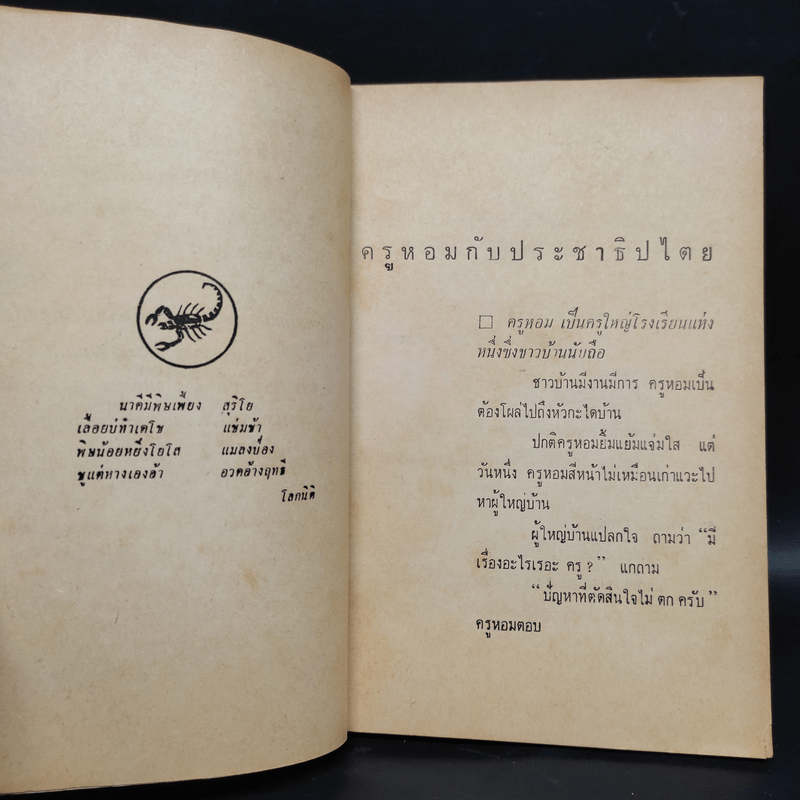 นาคีมีพิษเพี้ยง สุริโย
เลื้อยบ่ทำเดโช แช่มช้า
พิษน้อยหยิ่งโยโส แมลงป่อง
ชูแต่หางเองอ้า อวดอ้างฤทธี
โลกนิติ
ครูหอมกับประชาธิปไตย
☐ ครูหอม เป็นครูใหญ่โรงเรียนแห่ง
หนึ่งซึ่งชาวบ้านนับถือ
ชาวบ้านมีงานมีการ ครูหอมเป็น
ต้องโผล่ไปถึงหัวกะไดบ้าน
ปกติครูหอมยิ้มแย้มแจ่มใส แต่
วันหนึ่ง ครูหอมสีหน้าไม่เหมือนเก่าแวะไป
หาผู้ใหญ่บ้าน
ผู้ใหญ่บ้านแปลกใจ ถามว่า “มี
เรื่องอะไรเรอะ ครู ?” แกถาม
“ปัญหาที่ตัดสินใจไม่ ตก ครับ”
ครูหอมตอบ